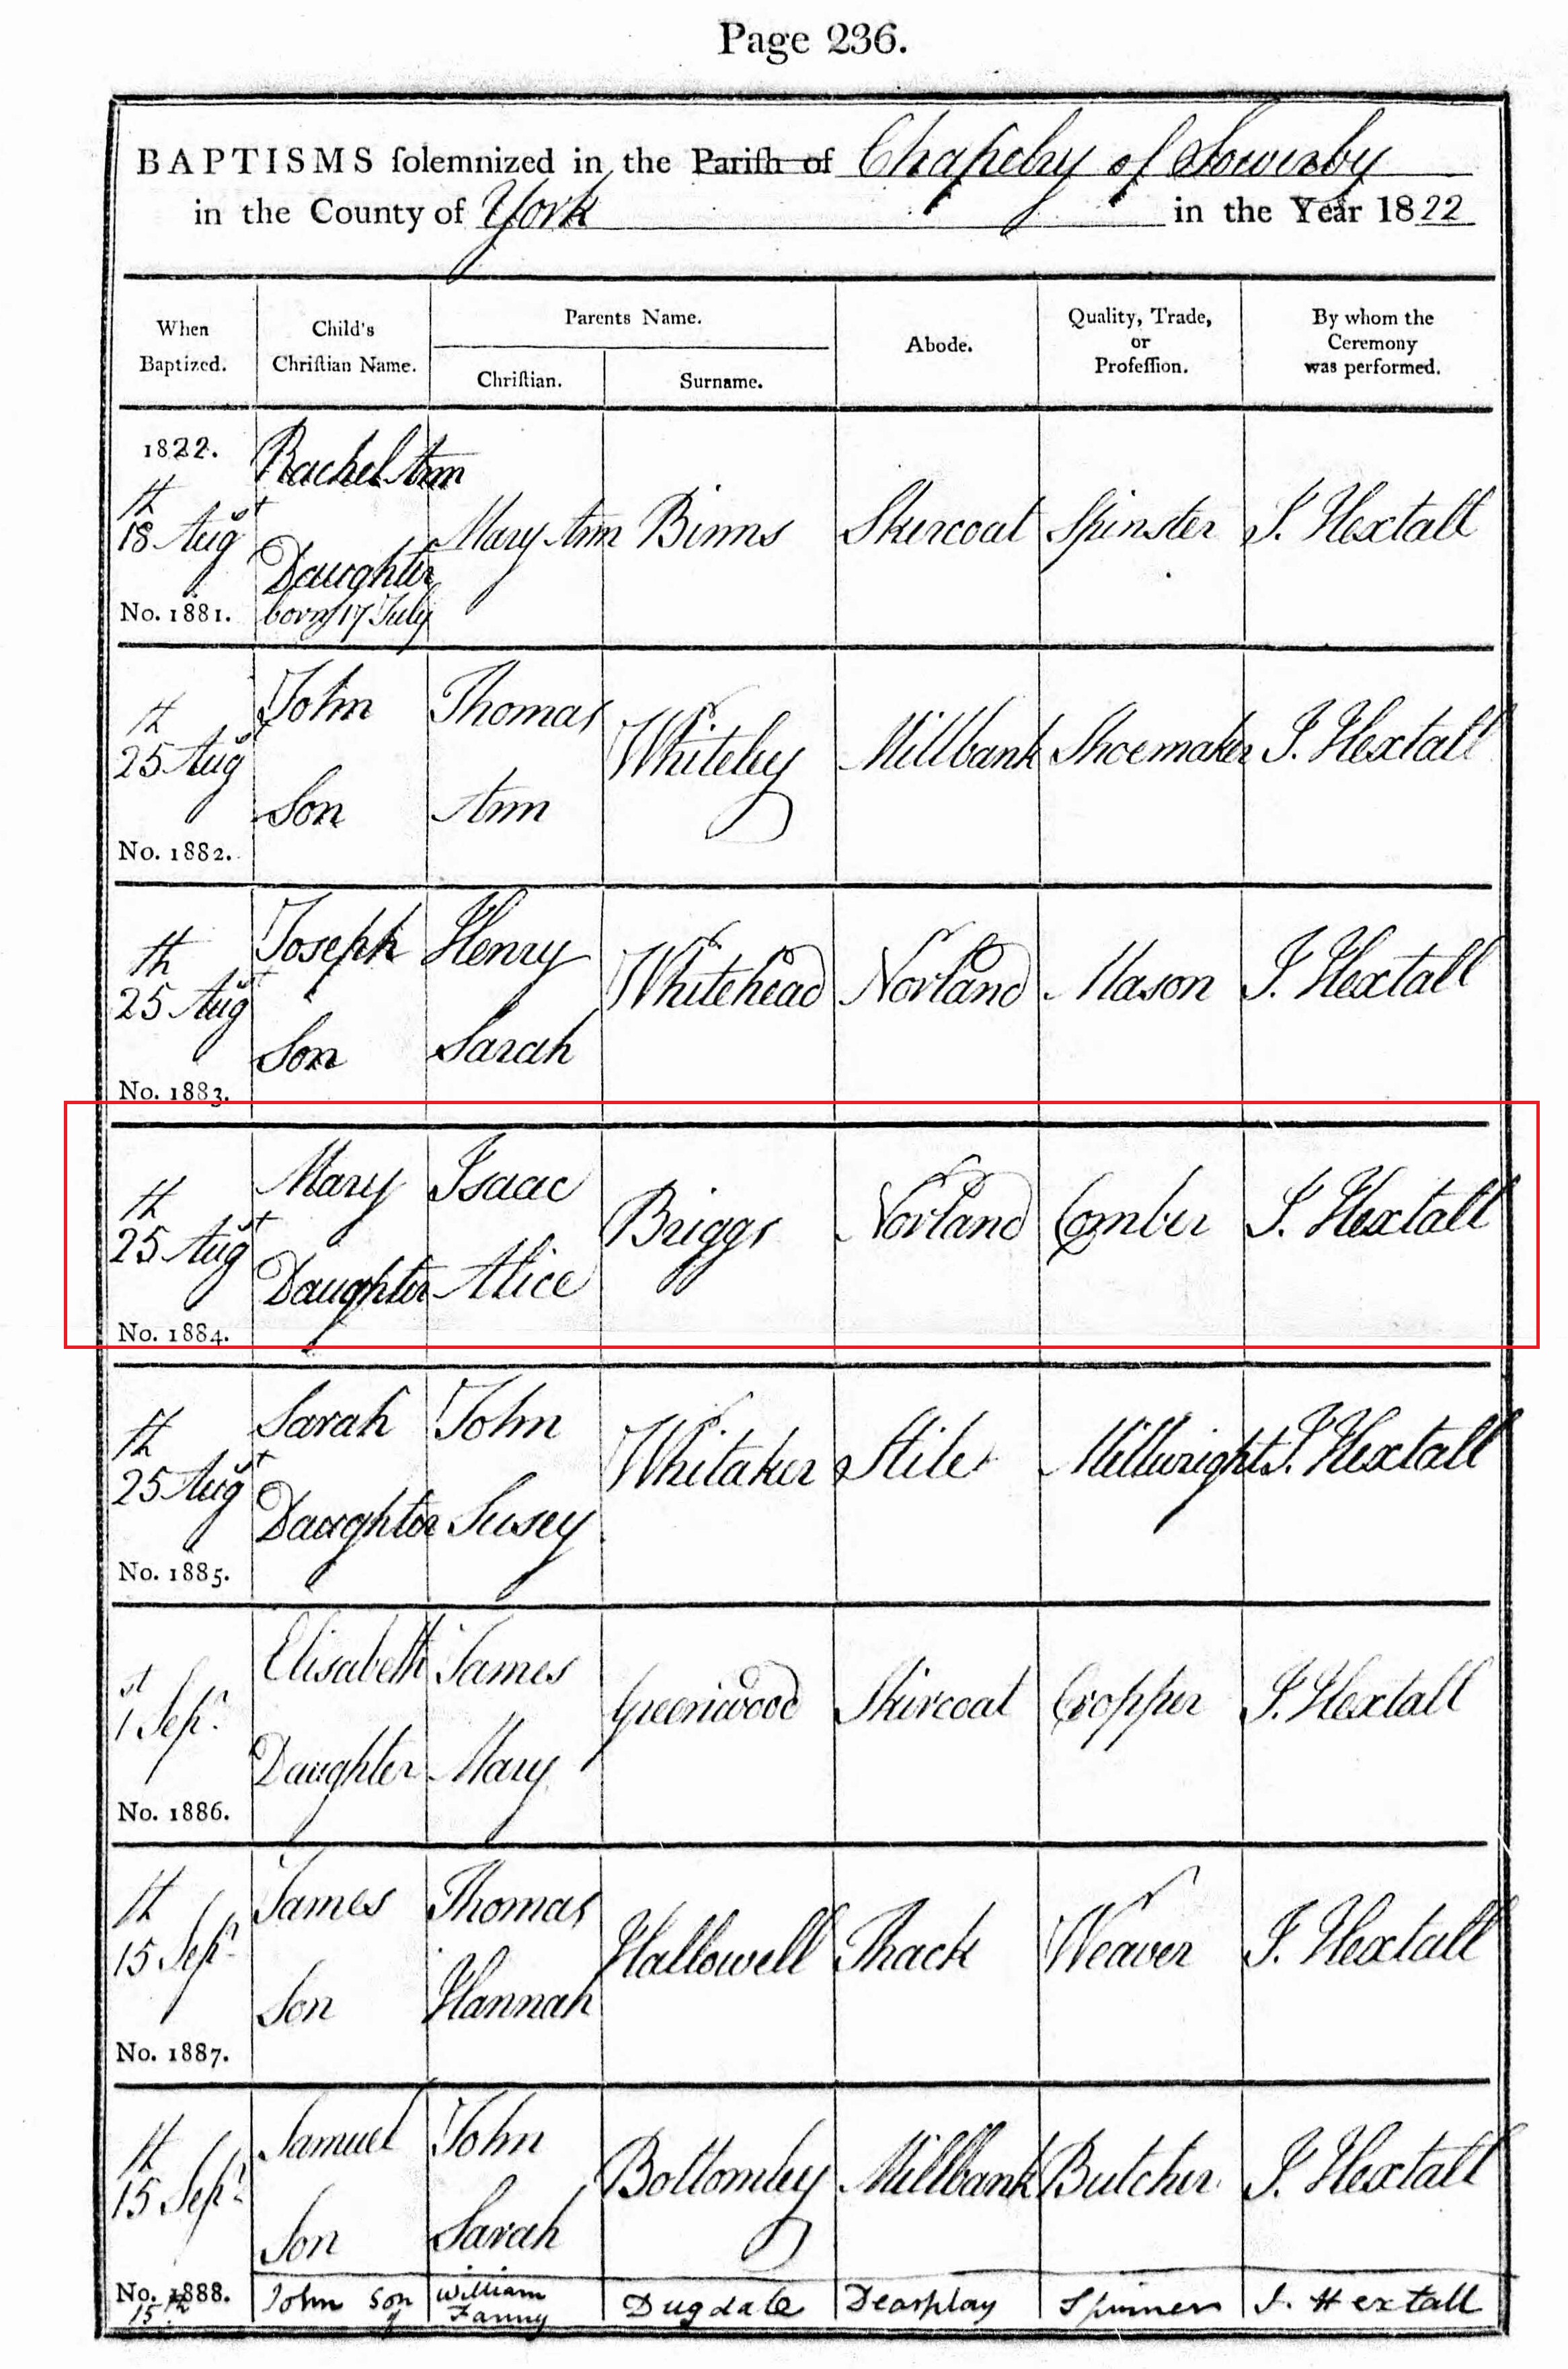 Page 236.
BAPTISMS solemnized in the Parish of Chapelry of Sowerby
in the County of York in the Year 1822
When Baptized. Child's Christian Name. Parents Name. Christian. Surname. Abode. Quality, Trade, or Profession. By whom the Ceremony was performed.
1822.
18th Augst Rachel Ann Daughter born 17 July Mary Ann Binns Skercoat Spinster J. Hextall
No. 1881.
25th Aug John Son Thomas Ann Whiteley Millbank Shoemaker J. Hextall
No. 1882.
25th Augst Joseph Son Henry Sarah Whitehead Norland Mason J. Hextall
No. 1883.
25th Augst Mary Daughter Isaac Alice Briggs Norland Comber J. Hextall
No. 1884.
25th Augst Sarah Daughter John Susey Whitaker Stile Millwright J. Hextall
No. 1885.
1st Sepr. Elisabeth Daughter James Mary Greenwood Skircoat Cropper J. Hextall
No. 1886.
15th Sepr. James Son Thomas Hannah Hallowell Thack Weaver J. Hextall
No. 1887.
15th Sepr. Samuel Son John Sarah Bottomley Millbank Butcher J. Hextall
No. 1888.
15th John Son of William Fanny Dugdale Deasplay Spinner J. Hextall